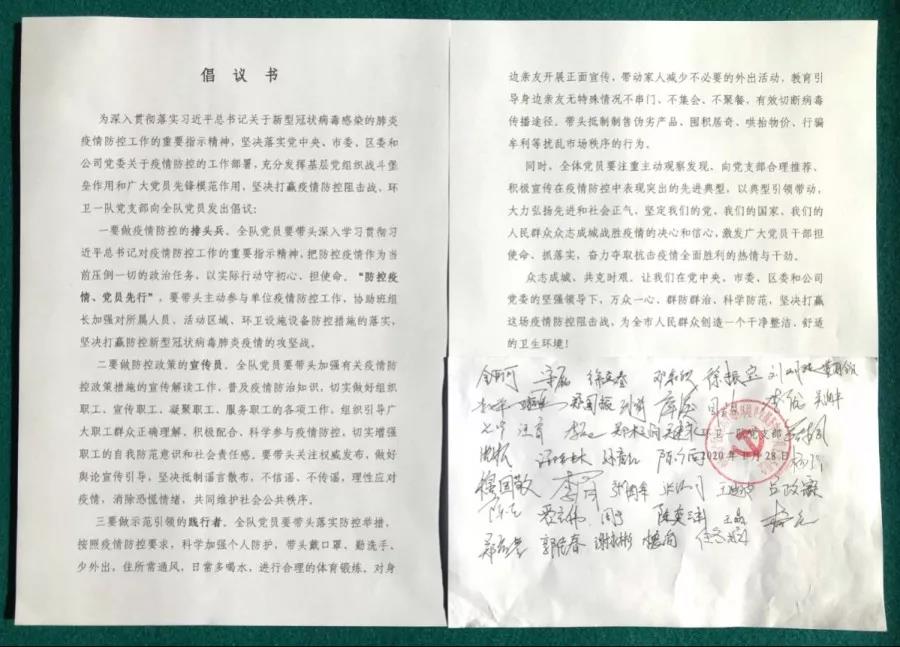 倡 议 书
为深入贯彻落实习近平总书记关于新型冠状病毒感染的肺炎
疫情防控工作的重要指示精神，坚决落实党中央、市委、区委和
公司党委关于疫情防控的工作部署，充分发挥基层党组织战斗堡
垒作用和广大党员先锋模范作用，坚决打赢疫情防控阻击战，环
卫一队党支部向全队党员发出倡议：
一要做疫情防控的排头兵。全队党员要带头深入学习贯彻习
近平总书记对疫情防控工作的重要指示精神，把防控疫情作为当
前压倒一切的政治任务，以实际行动守初心、担使命。“防控疫
情、党员先行”，要带头主动参与单位疫情防控工作，协助班组
长加强对所属人员、活动区域、环卫设施设备防控措施的落实，
坚决打赢防控新型冠状病毒肺炎疫情的攻坚战。
二要做防控政策的宣传员。全队党员要带头加强有关疫情防
控政策措施的宣传解读工作，普及疫情防治知识，切实做好组织
职工、宣传职工、凝聚职工、服务职工的各项工作，组织引导广
大职工群众正确理解、积极配合、科学参与疫情防控，切实增强
职工的自我防范意识和社会责任感。要带头关注权威发布，做好
舆论宣传引导，坚决抵制谣言散布，不信谣、不传谣，理性应对
疫情，消除恐慌情绪，共同维护社会公共秩序。
三要做示范引领的践行者。全队党员要带头落实防控举措，
按照疫情防控要求，科学加强个人防护，带头戴口罩、勤洗手、
少外出，住所常通风，日常多喝水，进行合理的体育锻炼。对身
边亲友开展正面宣传，带动家人减少不必要的外出活动，教育引
导身边亲友无特殊情况不串门、不集会、不聚餐，有效切断病毒
传播途径。带头抵制制售伪劣产品、囤积居奇、哄抬物价、行骗
牟利等扰乱市场秩序的行为。
同时，全体党员要注重主动观察发现、向党支部合理推荐、
积极宣传在疫情防控中表现突出的先进典型，以典型引领带动，
大力弘扬先进和社会正气，坚定我们的党、我们的国家、我们的
人民群众众志成城战胜疫情的决心和信心，激发广大党员干部担
使命、抓落实，奋力夺取抗击疫情全面胜利的热情与干劲。
众志成城，共克时艰。让我们在党中央、市委、区委和公司
党委的坚强领导下，万众一心、群防群治、科学防范，坚决打赢
这场疫情防控阻击战，为全市人民群众创造一个干净整洁、舒适
的卫生环境！
徐振宝
环卫一队党支部
2020年1月28日
徐国敏
郭信春